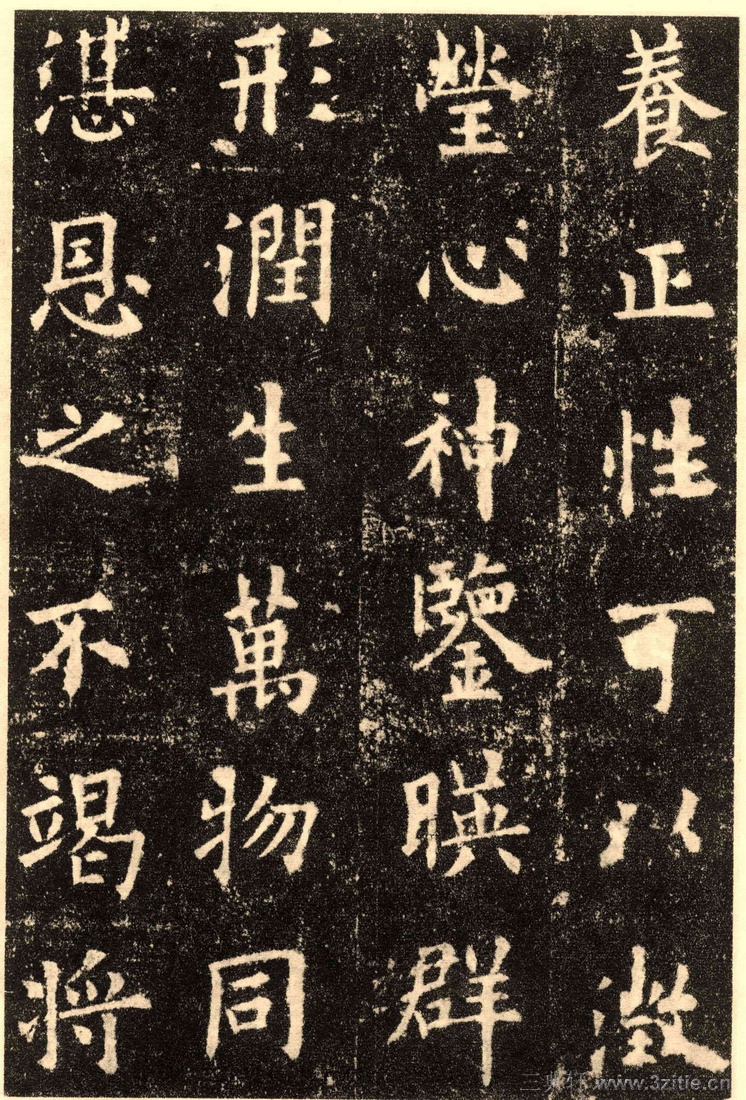 養正性可以澂
瑩心神鑒暎群
形潤生萬物同
湛恩之不竭将
www.3zitie.cn